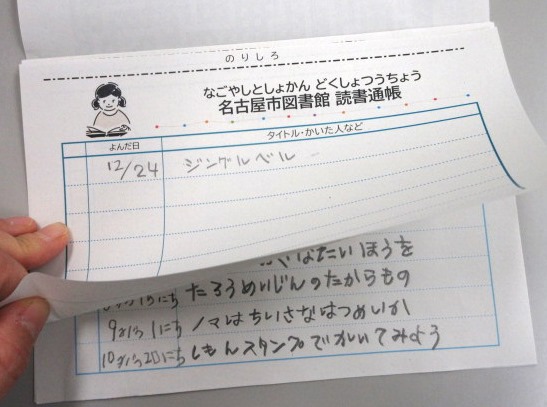 のりしろ
なごやしとしょかん どくしょつうちょう
名古屋市図書館 読書通帳
よんだ日 タイトル・かいた人など
12/24 ジングルベル
ほうを
15にち たろうめいじんのたからもの
9がつ1にち ノマはちいさなはつめいか
10がつ20にち しもんスタンプでかいてみよう